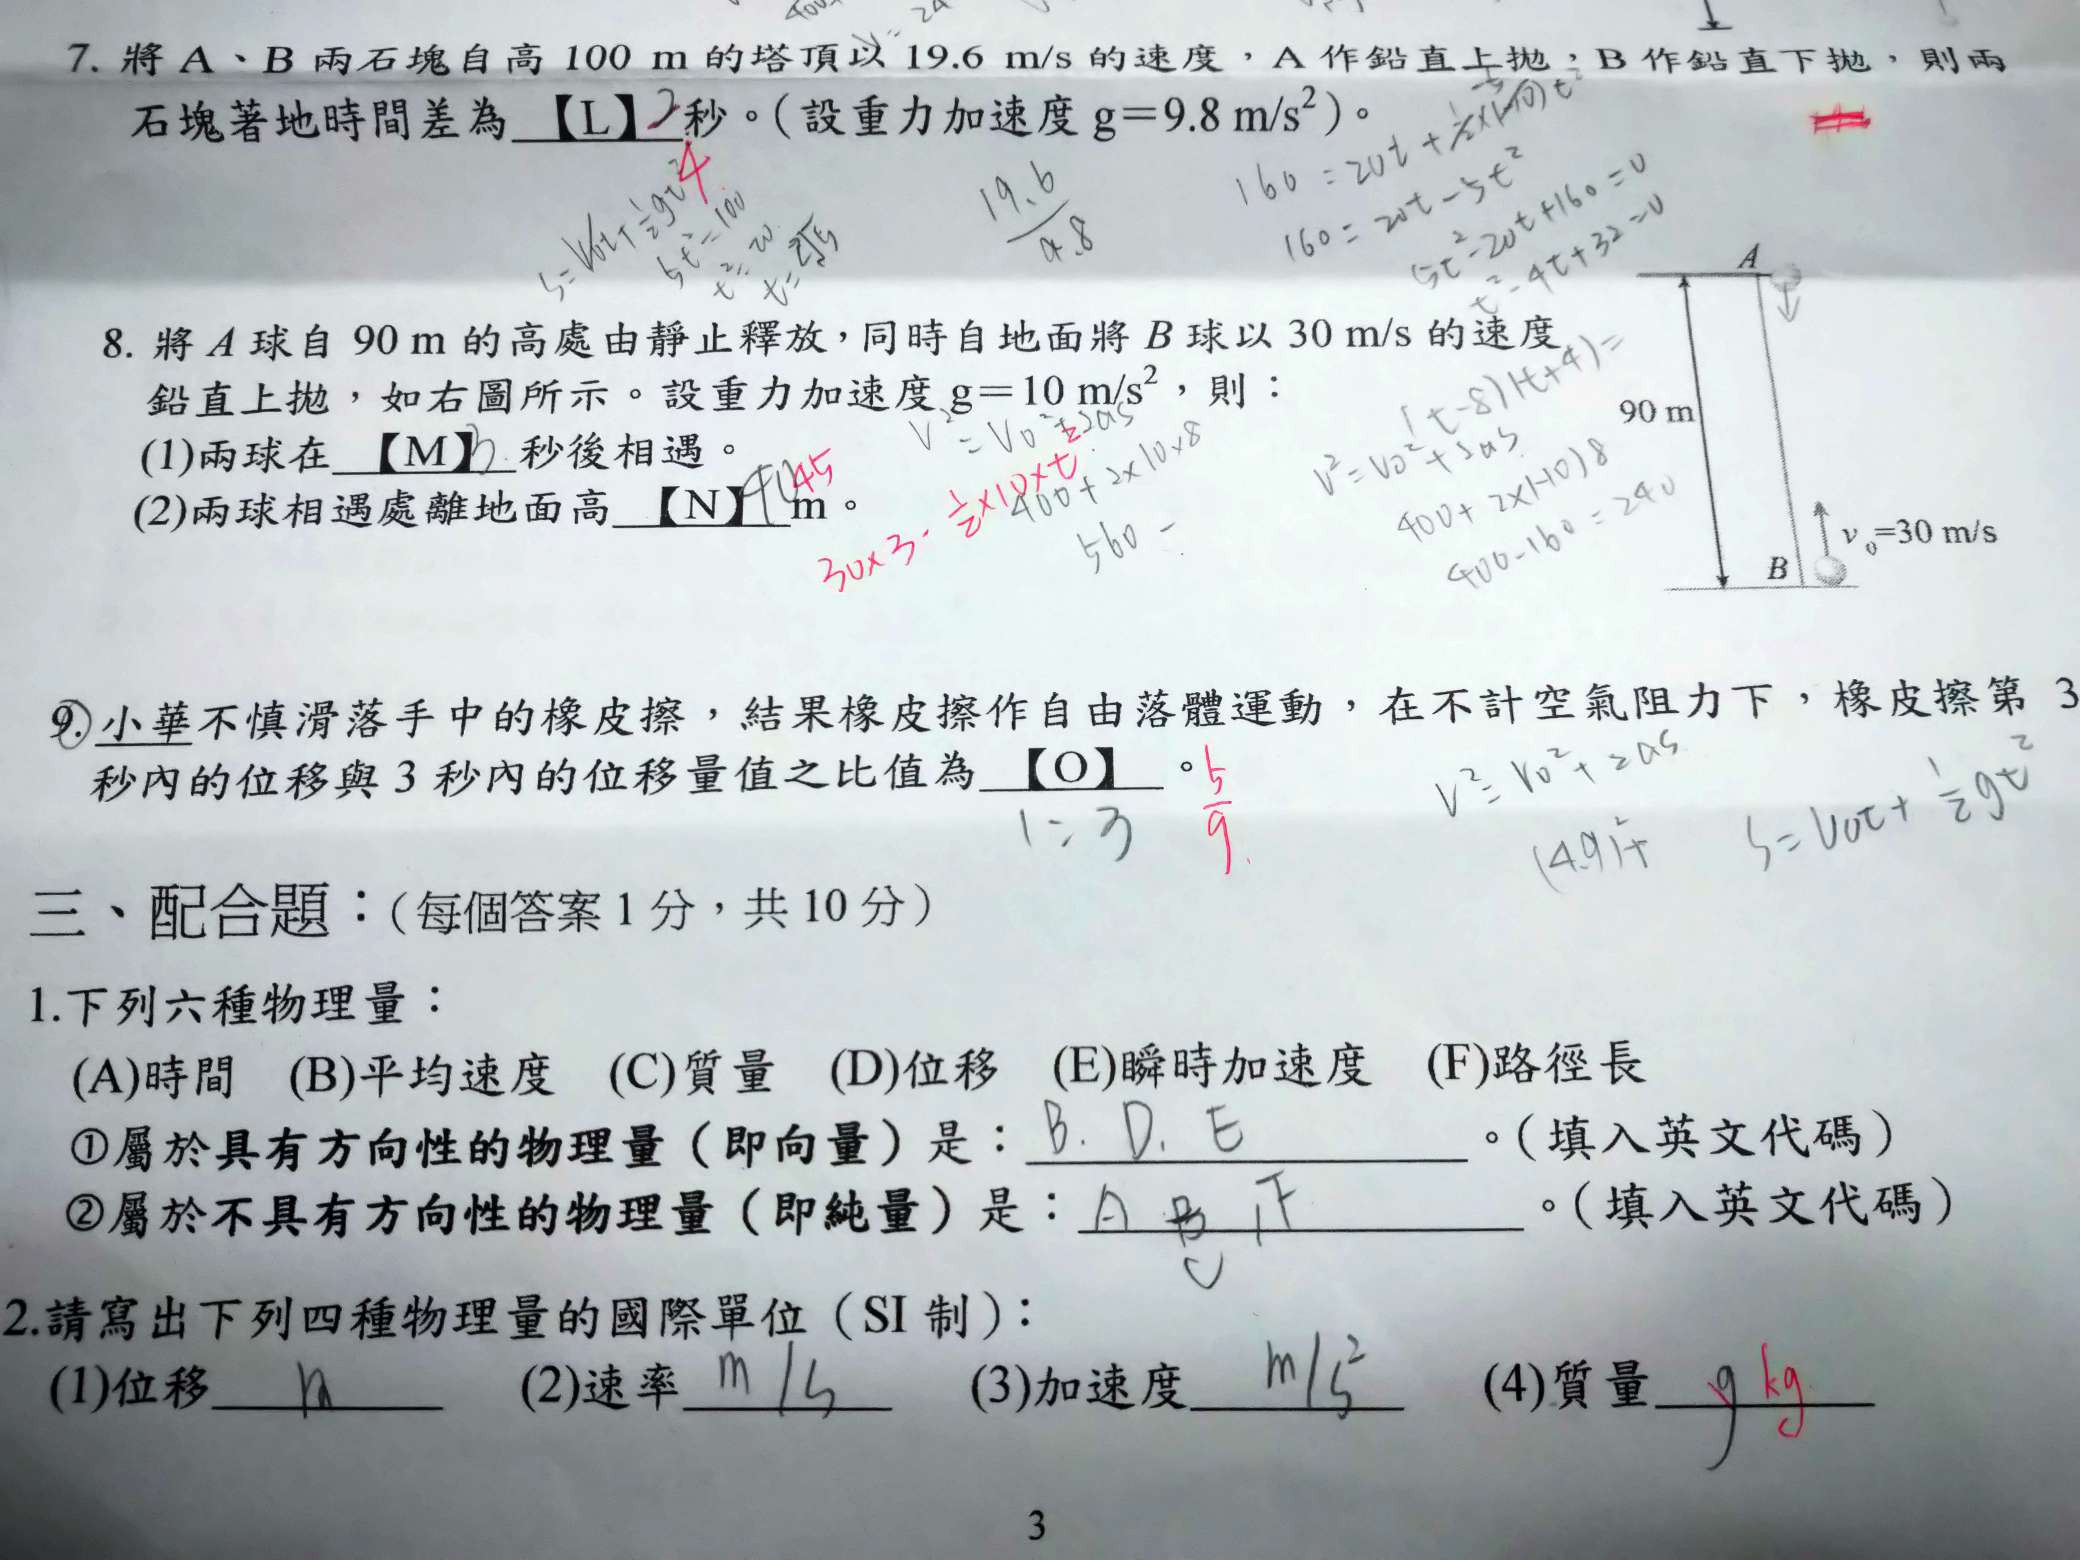 7. 將 A、B 兩石塊自高 100 m 的塔頂以 19.6 m/s 的速度，A 作鉛直上拋；B 作鉛直下拋，則兩
石塊著地時間差為【L】2秒。（設重力加速度 g＝9.8 m/s²）。
4
S=V₀t+½gt²
5t²=100
t²=20
t=2√5
19.6
9.8
160=20t-5t²
5t²-20t+160=0
t²-4t+32=0
(t-8)(t+4)=
8. 將 A 球自 90 m 的高處由靜止釋放，同時自地面將 B 球以 30 m/s 的速度
鉛直上拋，如右圖所示。設重力加速度 g＝10 m/s²，則：
(1)兩球在【M】3秒後相遇。
(2)兩球相遇處離地面高【N】m。
45
30×3-½×10×t²
V²=V₀²+2as
400+2×10×8
560-
V²=V₀²+2as
400+2×(-10)8
400-160=240
A
90 m
B
v₀=30 m/s
9. 小華不慎滑落手中的橡皮擦，結果橡皮擦作自由落體運動，在不計空氣阻力下，橡皮擦第 3
秒內的位移與 3 秒內的位移量值之比值為【O】。
1:3
5/9
V²=V₀²+2as
(4.9)²+
S=V₀t+½gt²
三、配合題：（每個答案 1 分，共 10 分）
1.下列六種物理量：
(A)時間 (B)平均速度 (C)質量 (D)位移 (E)瞬時加速度 (F)路徑長
①屬於具有方向性的物理量（即向量）是：B. D. E。（填入英文代碼）
②屬於不具有方向性的物理量（即純量）是：A C F。（填入英文代碼）
2.請寫出下列四種物理量的國際單位（SI 制）：
(1)位移 m (2)速率 m/s (3)加速度 m/s² (4)質量 g kg
3